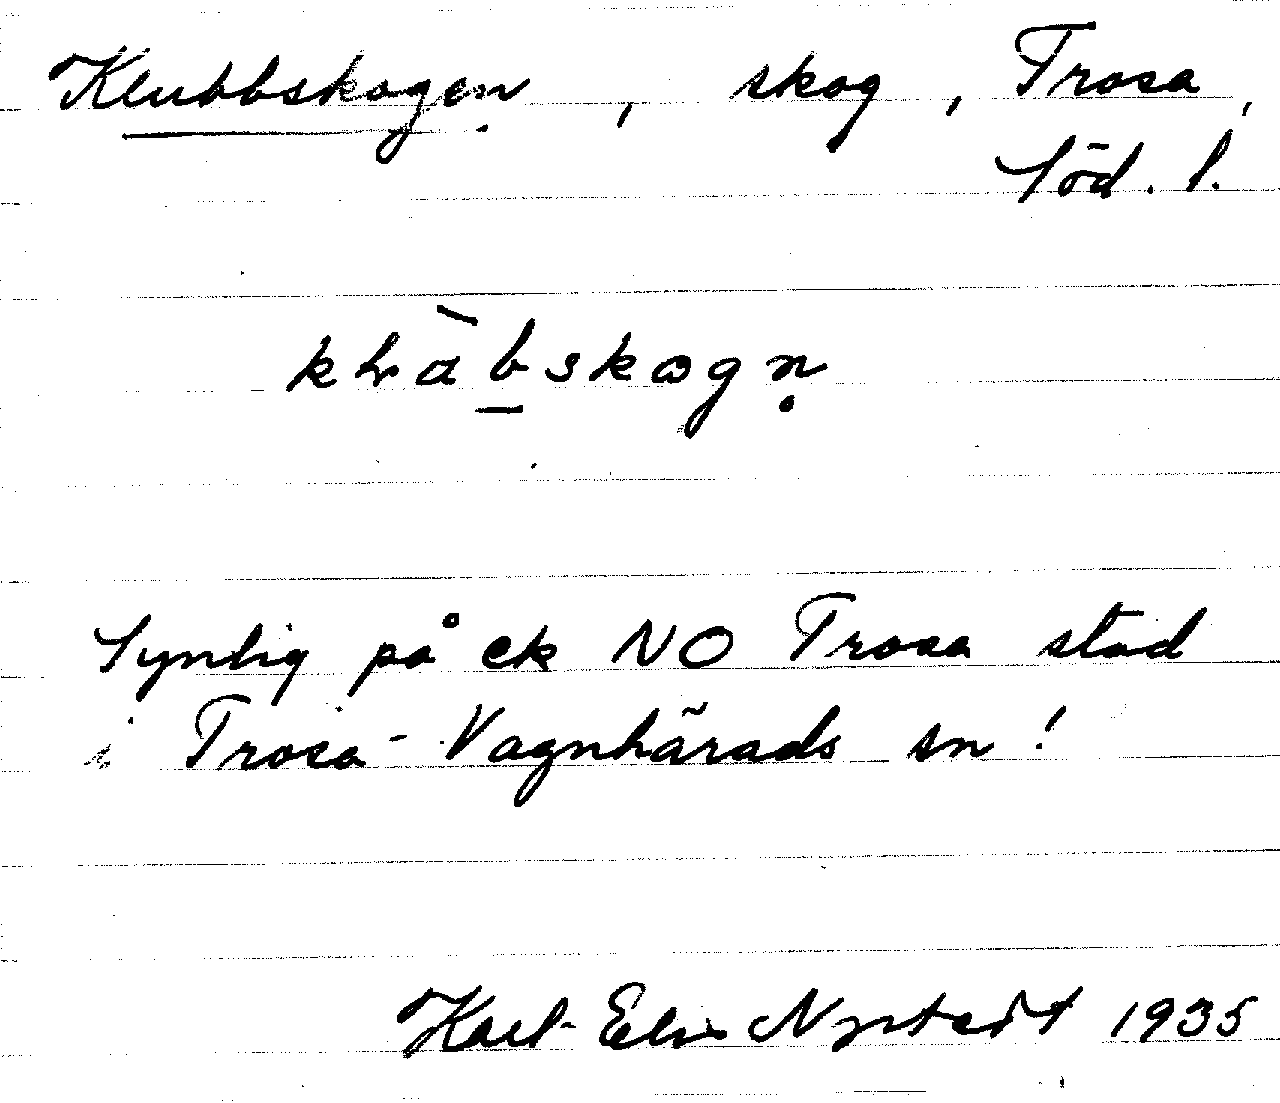 Klubbskogen, skog, Trosa,
Söd. l.
klàb̲skogṇ
Synlig på ek NO Trosa stad
i Trosa-Vagnhärads sn!
Karl-Elis Nystedt 1935